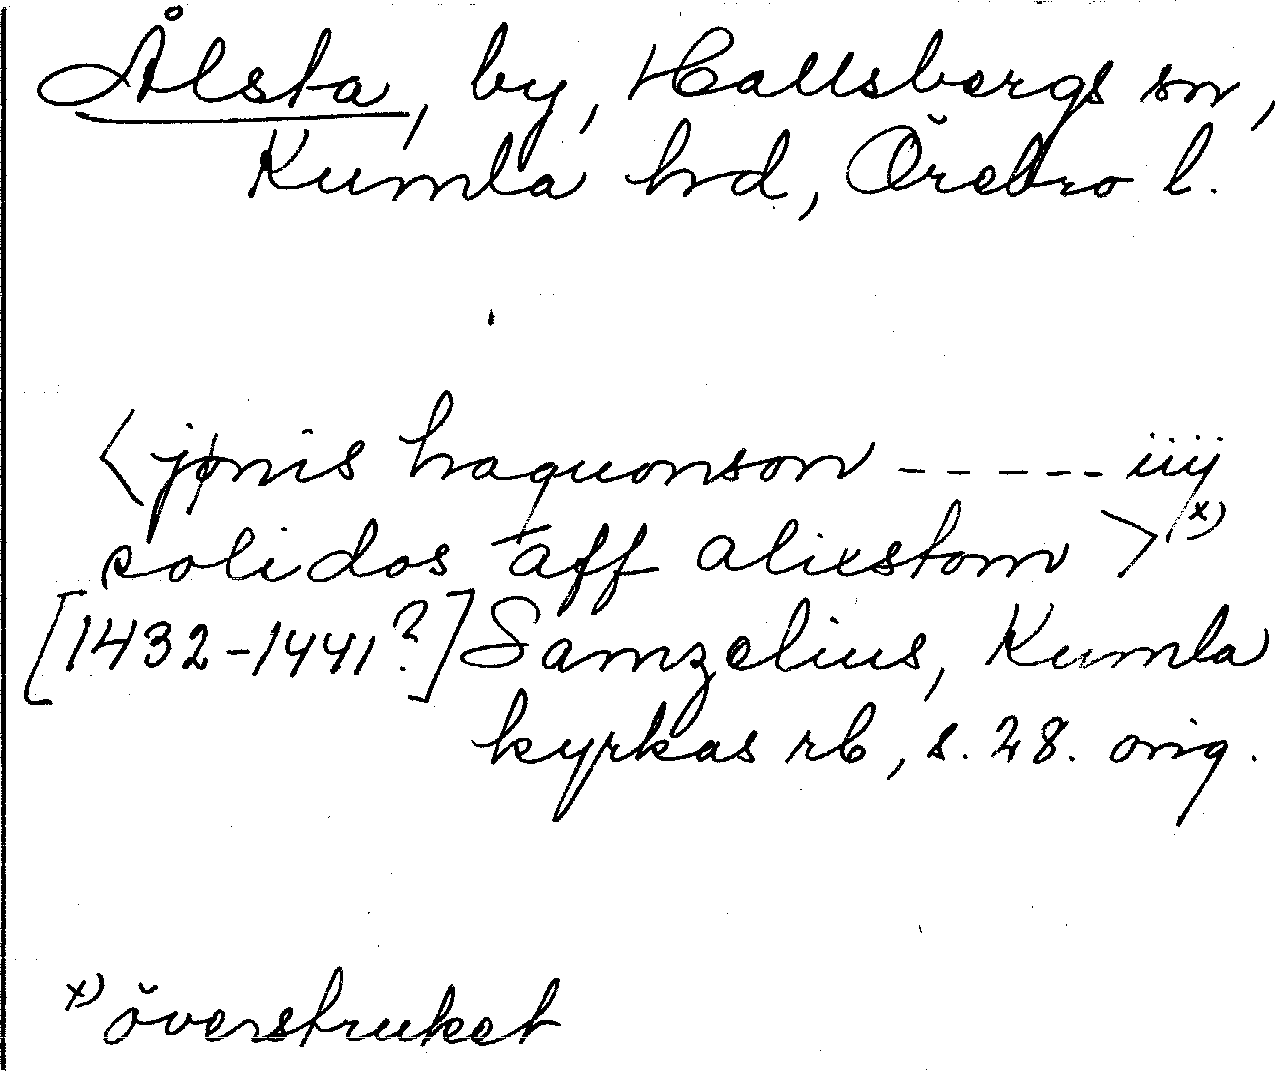 Ålsta, by, Hallsbergs sn,
Kumla hd, Örebro l.
<jønis haquonson ----- iiij
solidos aff alixstom >x)
[1432-1441?] Samzelius, Kumla
kyrkas rb, s. 28. orig.
x) överstruket